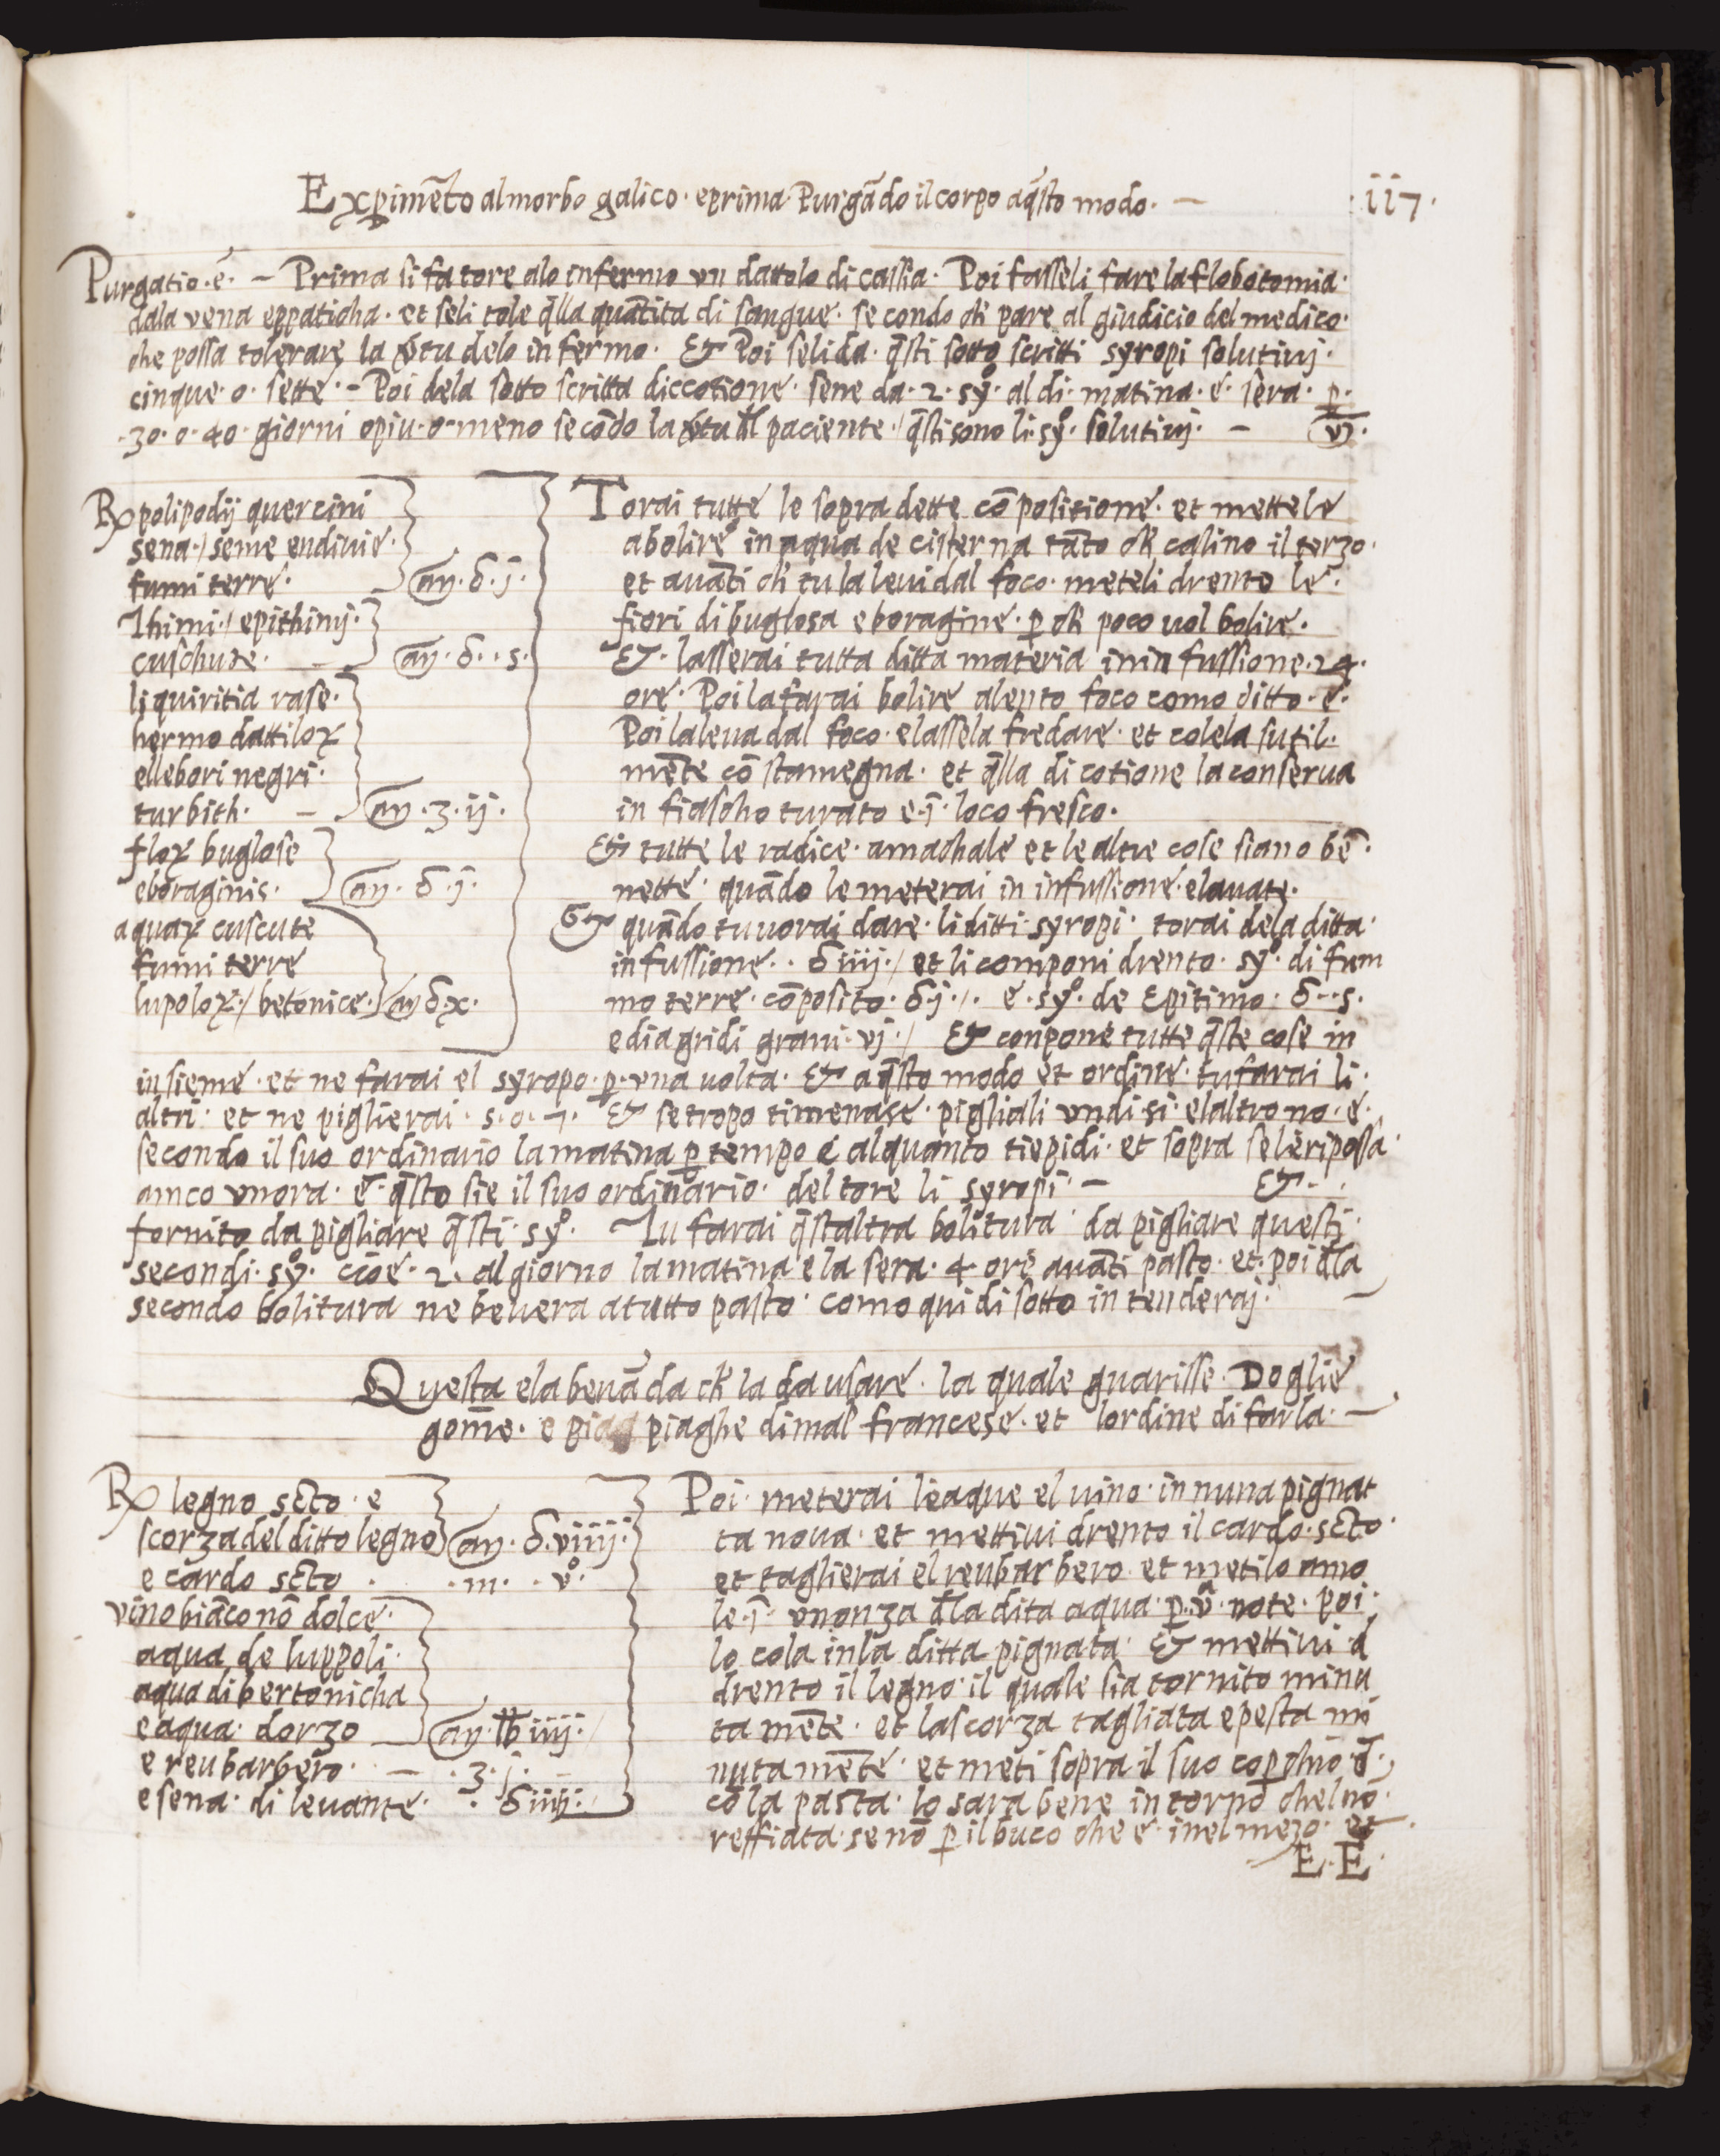 Exꝑimẽto al morbo galico · e prima Purgãdo il corpo a q̃sto modo · —
· ii7 ·
Purgatio · e · — Prima si fa tore alo infermo vn dattolo di cassia · Poi fasseli fare la flobotomia ·
dala vena eppaticha · et seli tole q̃lla quãtita di sangue · secondo ch̃ pare al giudicio del medico ·
che possa tolerare la v̄tu delo infermo · & Poi seli da · q̃sti sotto scritti syropi solutiuj ·
cinque · o · sette · — Poi dela sotto scritta diccotione · sene da · 2 · syº · al di · matina · e · sera · ꝑ ·
· 30 · o · 40 · giorni o piu · o · meno secõdo la v̄tu d̃l paciente · / q̃sti sono li · syº · solutiuj · — vj ·
℞ polipodij quercini
sena · / seme endiuie ·
fumi terre · añ · ℥ · j ·
Thimi · / epithimj ·
cuschute · — añ · ℥ · · s ·
liquiritia rase ·
hermo dattiloꝝ
ellebori negri ·
turbith · — añ · ʒ · ij ·
floꝝ buglose
e boraginis · añ · ℥ · j ·
aquaꝝ cuscute
fumi terre
lupoloꝝ · / betonice · añ ℥ · x ·
Torai tutte le sopra dette cõpositione · et mettele
a bolire in aqua de cisterna tãto ch̃ calino il terzo ·
et auãti ch̃ tu la leui dal foco · meteli drento le ·
fiori di buglosa e boragine · ꝑ ch̃ poco uol bolire ·
& · lasserai tutta ditta materia in in fussione · 24 ·
ore · Poi la farai bolire a lento foco como ditto · e ·
Poi la leua dal foco · e lassela fredare · et colela sutil ·
mẽte cõ stamegna · et q̃lla di cotione la conserua
in fiascho turato e · ĩ · loco fresco ·
& tutte le radice · amachale et le altre cose siano bẽ ·
nette · quãdo le meterai in infussione · e lauate ·
& quãdo tu uorai dare · li ditti · syropi · torai dela ditta ·
infussione · · ℥ iiij · / et li componi drento · syº · di fum
mo terre · cõposito · ℥ j · / · e · syº · de Epitimo · ℥ · · s ·
e diagridi grani · vj · / & conpone tutte q̃ste cose in
insieme · et ne farai el syropo · ꝑ · vna uolta · & a q̃sto modo et ordine · tu farai li ·
altri · et ne piglierai · 5 · o · 7 · & se tropo ti menase · pigliali vn di si · e laltro no · e ·
secondo il suo ordinario la matina ꝑ tempo e alquanto tiepidi · et sopra seli ripossa ·
amco vnora · e · q̃sto sie il suo ordinario · del tore li syropi · — & · ·
fornito da pigliare q̃sti · syº · Tu farai q̃staltra bolitura · da pigliare questi ·
secondi · syº · cioe · 2 · al giorno la matina e la sera · 4 ore auãti pasto · et · poi d̃la
secondo bolitura ne beuera a tutto pasto · como qui di sotto intenderaj · —
Questa e la beuãda ch̃ la da usare · la quale guarisse · Doglie
gom̃e · e piag piaghe di mal francese · et lordine di farla · —
℞ legno sc̃to · e
scorza del ditto legno añ · ℥ · viiij ·
e cardo sc̃to · · m · · vº ·
vino biãco nõ dolce ·
aqua de luppoli ·
aqua di bertonicha
e aqua · dorzo añ · ℔ iiij ·
e reubarbero · — · ʒ · j · —
e sena · di leuante · · ℥ iiij · /
Poi · meterai le aque el uino · in nuna pignat
ta noua · et mettiui drento il cardo · sc̃to ·
et taglierai el reubarbero · et metilo amo
le · ĩ · vnonza d̃la dita aqua · ꝑ · vª · note · poi ·
lo cola in la ditta pignata · & mettiui · d
drento il legno · il quale sia tornito minu
ta mẽte · et la scorza tagliata e pesta mi
nuta mẽte · et meti sopra il suo coꝑchio · &
cõ la pasta · lo sara bene in torno chel nõ ·
reffiata · se nõ ꝑ il buco che e · inel mezo · et ·
E · E ·